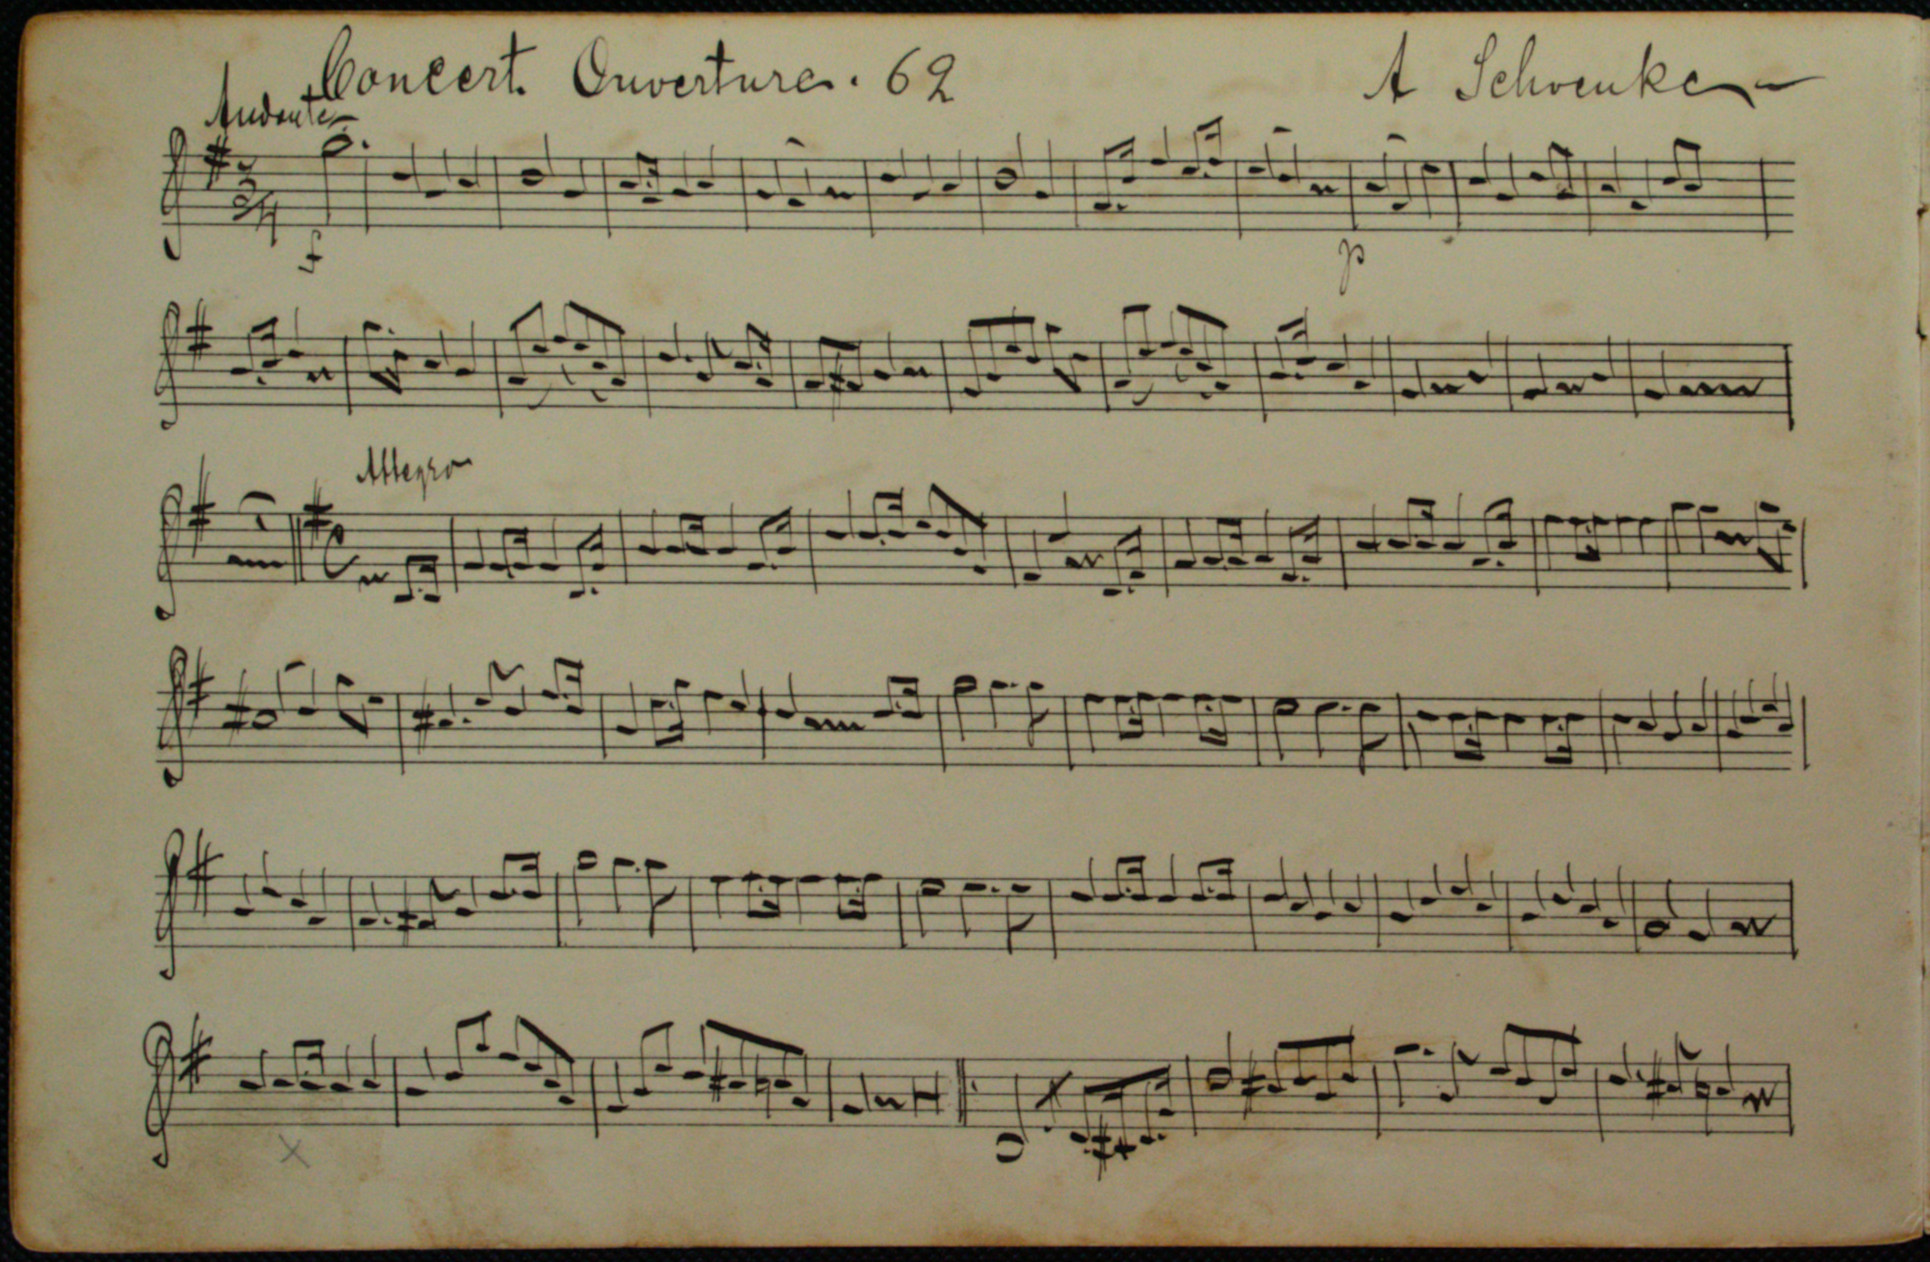 Concert Ouverture. 62 A Schvenke
Andante
3/4
f p
Allegro
C